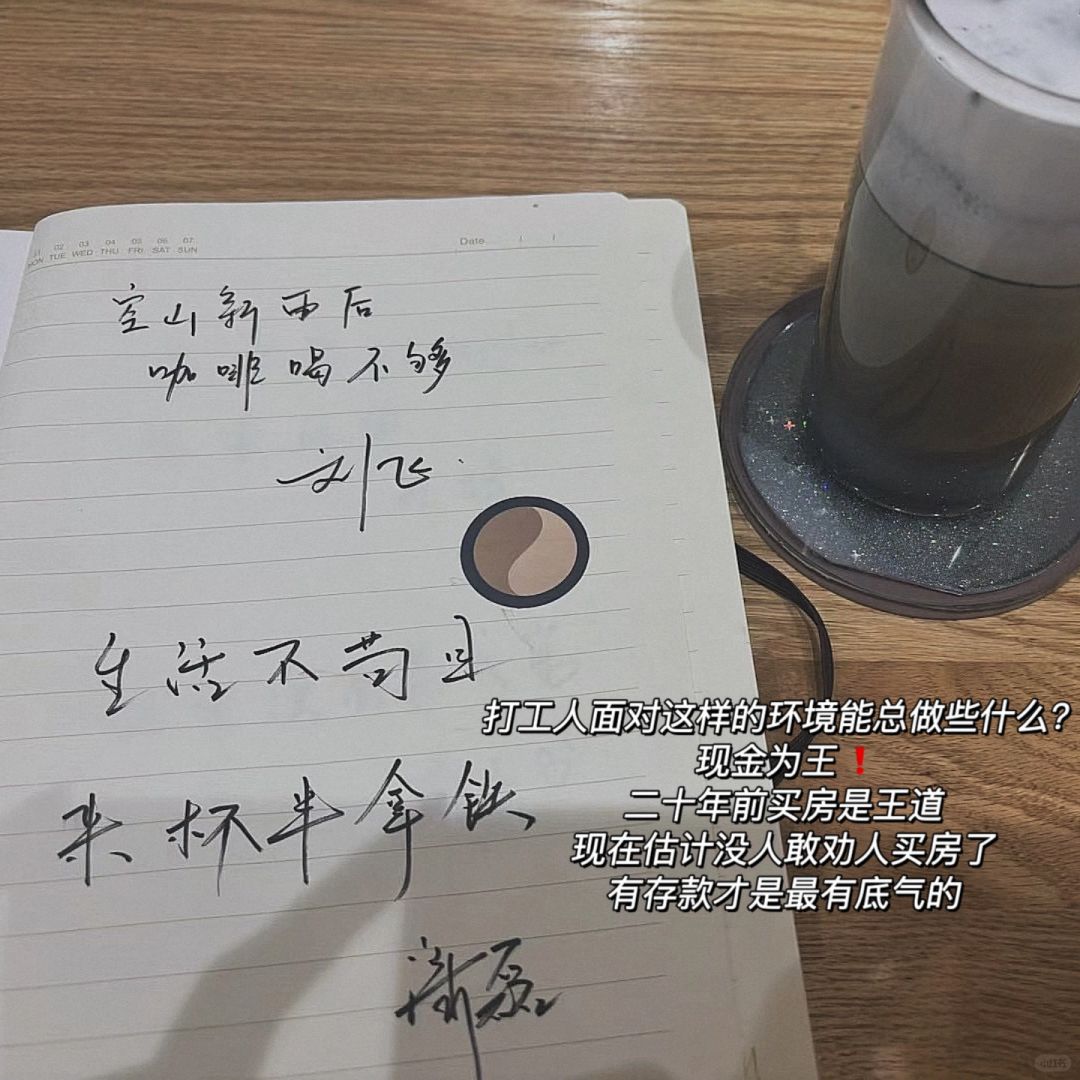 01 02 03 04 05 06 07
MON TUE WED THU FRI SAT SUN
Date
空山新雨后
咖啡喝不够
刘飞
生活不苟且
来杯半拿铁
潇磊
打工人面对这样的环境能总做些什么？
现金为王❗
二十年前买房是王道
现在估计没人敢劝人买房了
有存款才是最有底气的